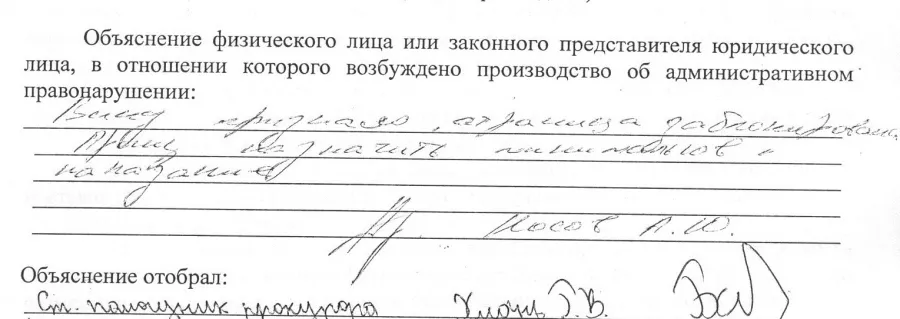 Объяснение физического лица или законного представителя юридического
лица, в отношении которого возбуждено производство об административном
правонарушении:
Вину признаю, страница заблокирована
Прошу назначить минимальное
наказание
Носов А.Ю.
Объяснение отобрал:
Ст. помощник прокурора